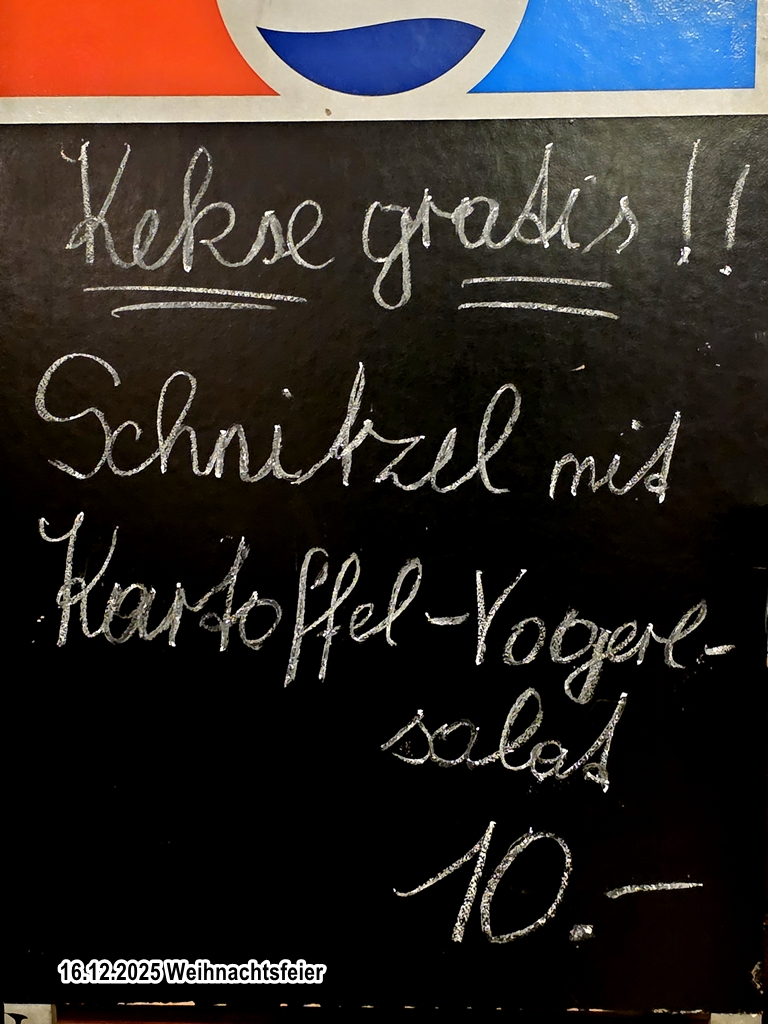 Kekse gratis!!
Schnitzel mit
Kartoffel-Vogerl-
salat
10.-
16.12.2025 Weihnachtsfeier